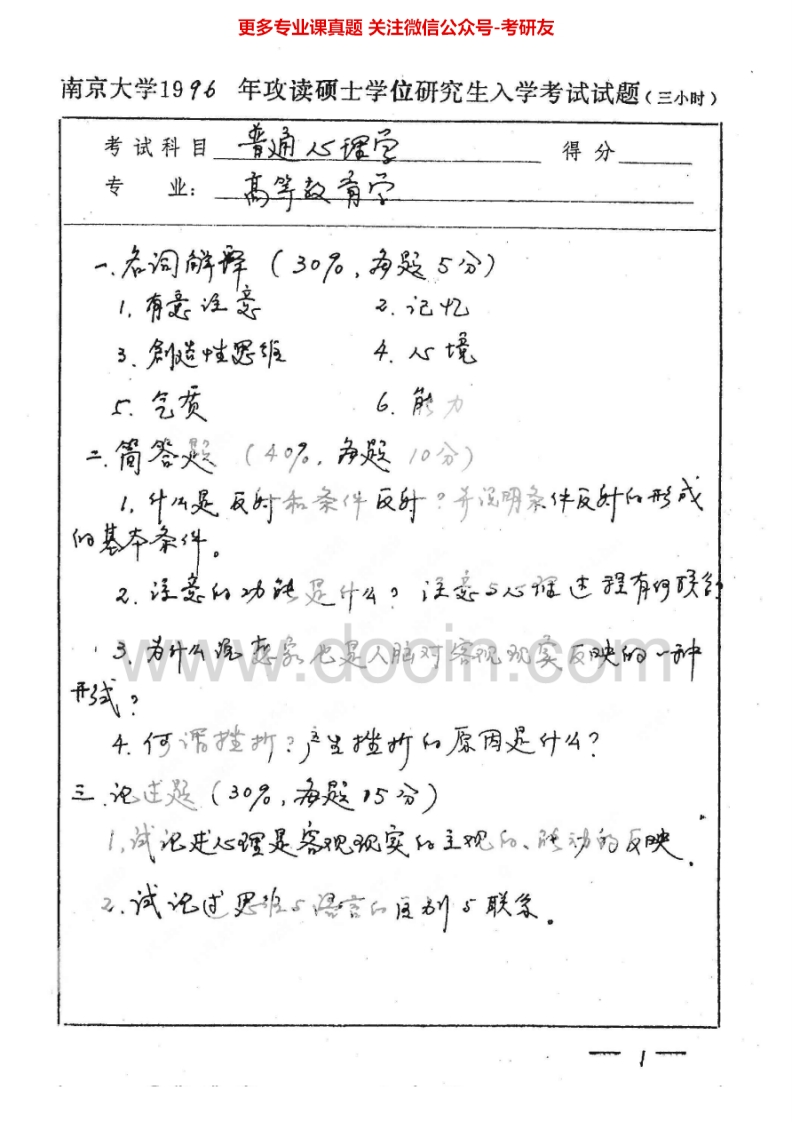 更多专业课真题 关注微信公众号-考研友
南京大学1996 年攻读硕士学位研究生入学考试试题(三小时)
考试科目 普通心理学 得分
专 业: 高等教育学
一.名词解释(30%,每题5分)
1.有意注意 2.记忆
3.創造性思维 4.心境
5.气质 6.能力
二.简答题(40%,每题10分)
1.什么是反射和条件反射?并说明条件反射的形成
的基本条件。
2.注意的功能是什么?注意与心理过程有何联系
3.为什么说想象也是人脑对客观现实反映的一种
形式?
www.docin.com
4.何谓挫折?产生挫折的原因是什么?
三.论述题(30%,每题15分)
1.试论述心理是客观现实的主观的、能动的反映.
2.试论述思维与语言的区别与联系。
— 1 —